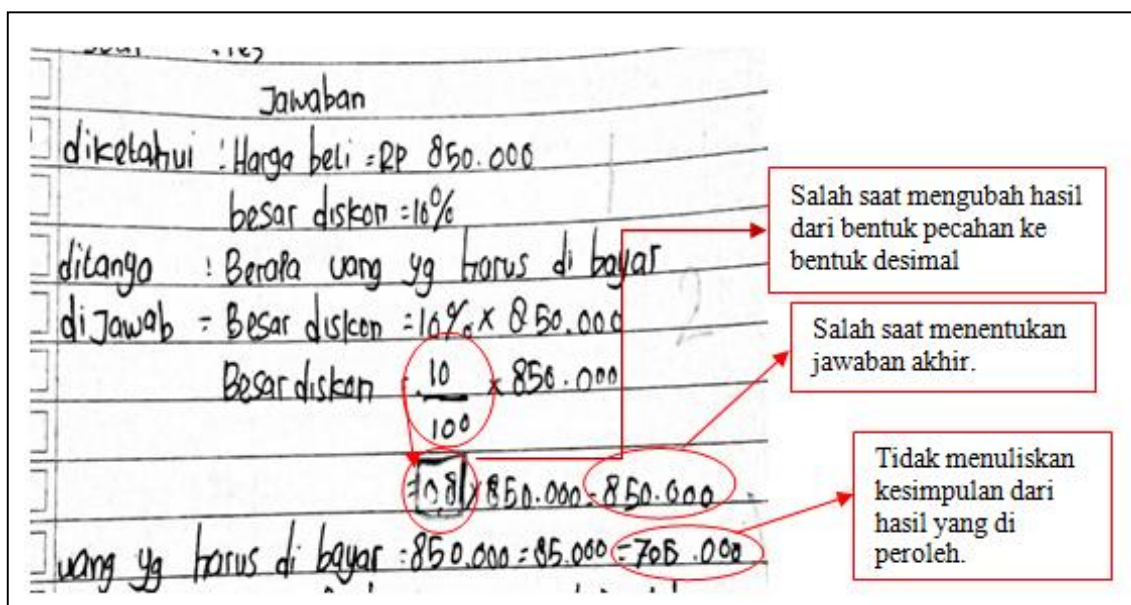 Jawaban
diketahui : Harga beli = RP 850.000
besar diskon = 10%
ditanya : Berapa uang yg harus di bayar
di Jawab = Besar diskon = 10% x 850.000
Besar diskon = 10 x 850.000
100
= 0,8 x 850.000 = 850.000
uang yg harus di bayar = 850.000 = 85.000 = 705.000
Salah saat mengubah hasil
dari bentuk pecahan ke
bentuk desimal
Salah saat menentukan
jawaban akhir.
Tidak menuliskan
kesimpulan dari
hasil yang di
peroleh.